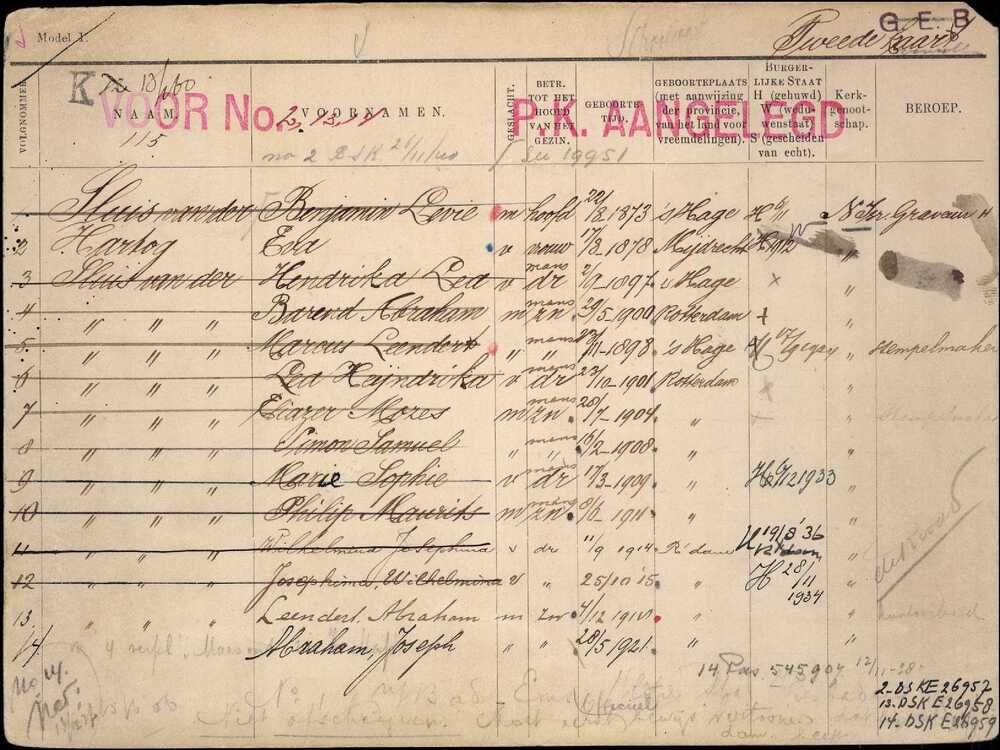 G.E.B
Model 1.
Tweede kaart
K
13/660
VOOR No. 2, 13, 14 P.K. AANGELEGD
VOLGNOMMER
NAAM.
VOORNAMEN.
GESLACHT.
BETR. TOT HET HOOFD VAN HET GEZIN.
GEBOORTE-TIJD.
GEBOORTEPLAATS (met aanwijzing der provincie, van het land voor vreemdelingen).
BURGERLIJKE STAAT H (gehuwd) W (weduwenstaat) S (gescheiden van echt).
Kerkgenootschap.
BEROEP.
115
no 2 P.S.K. 21/11/40
19951
1 Sluis van der Benjamin Levie m hoofd 22/8 1873 's Hage H N Isr. Graveur H
2 Hartog Eva v vrouw 17/8 1878 Mijdrecht H W "
3 Sluis van der Hendrika Lea v mans dr 1897 's Hage × "
4 " " " Barend Abraham m mans zn 29/5 1900 Rotterdam + "
5 " " " Marcus Leendert " mans " 23/11 1898 's Hage H " Stempelmaker
6 " " " Lea Heijndrika v mans dr 23/10 1901 Rotterdam × "
7 " " " Eliazer Mozes m mans zn 28/7 1904 " "
8 " " " Simon Samuel " mans " 2 1908 " "
9 " " " Marie Sophie v mans dr 17/3 1909 " H 12 1933 "
10 " " " Philip Maurits m mans zn 8/6 1911 " "
11 " " " Wilhelmina Josephina v dr 11/9 1914 R'dam H 19/8 '36 R'dam "
12 " " " Josephina, Wilhelmina v " 25/10 '15 " H 28/11 1934 "
13 " " " Leendert Abraham m zn 4/12 1910 " "
14 Abraham, Joseph " " 28/5 1921 " "
14 Pas 545904 12/11-28
no 14.
Niet afschrijven. Moet eerst bewijs vertoonen
Officieel
2-DSK E 26957
13-DSK E 26958
14-DSK E 26959